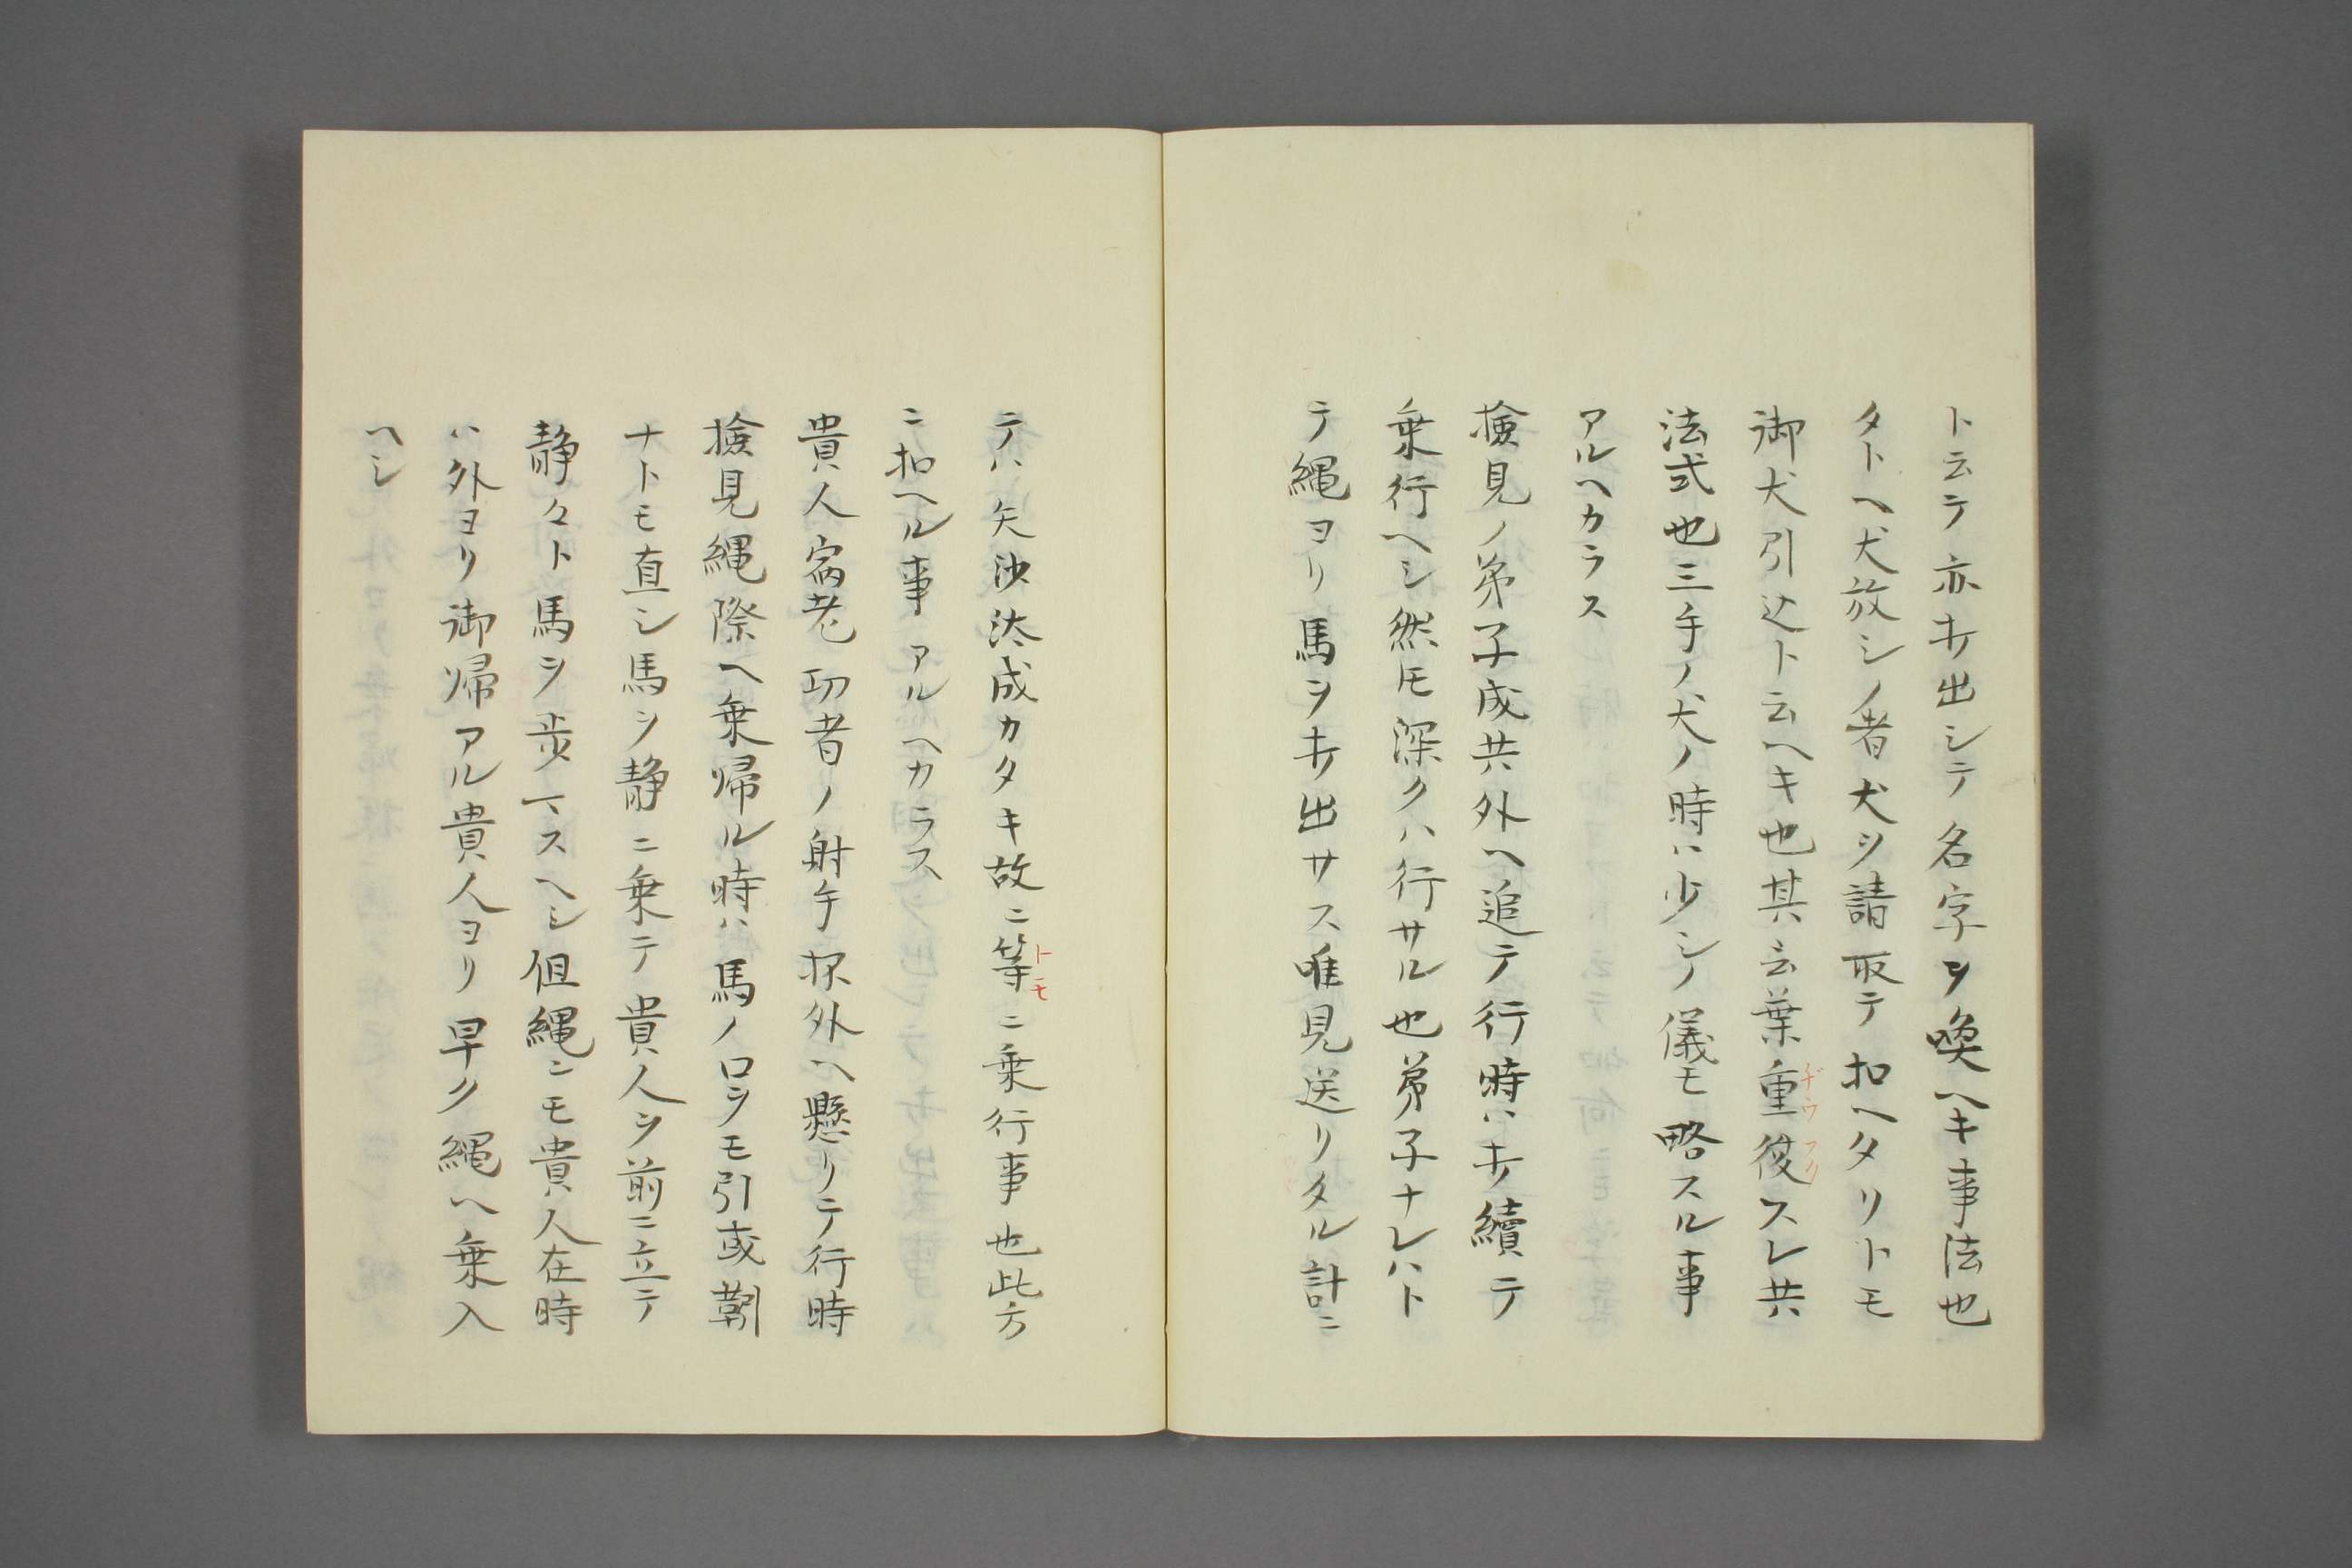 ト云テ亦打出シテ名字ヲ喚ヘキ事法也
タトヘ犬放シノ者犬ヲ請取テ扣ヘタリトモ
御犬引込ト云ヘキ也其言葉重復スレ共
ヂウフク
法式也三手ノ犬ノ時ハ少シノ儀モ略スル事
アルヘカラス
検見ノ弟子成共外ヘ追テ行時ハ打續テ
乗行ヘシ然モ深クハ行サル也弟子ナレハト
テ縄ヨリ馬ヲ打出サス唯見送リタル計ニ
テハ矢沙汰成カタキ故ニ等ニ乗行事也此方
トモ
ニ扣ヘル事アルヘカラス
貴人宿老功者ノ射手抔外ヘ懸リテ行時
検見縄際ヘ乗帰ル時ハ馬ノ口ヲモ引或鞢
ナトモ直シ馬ヲ静ニ乗テ貴人ヲ前ニ立テ
静々ト馬ヲ歩マスヘシ但縄ニモ貴人在時
ハ外ヨリ御帰アル貴人ヨリ早ク縄ヘ乗入
ヘシ